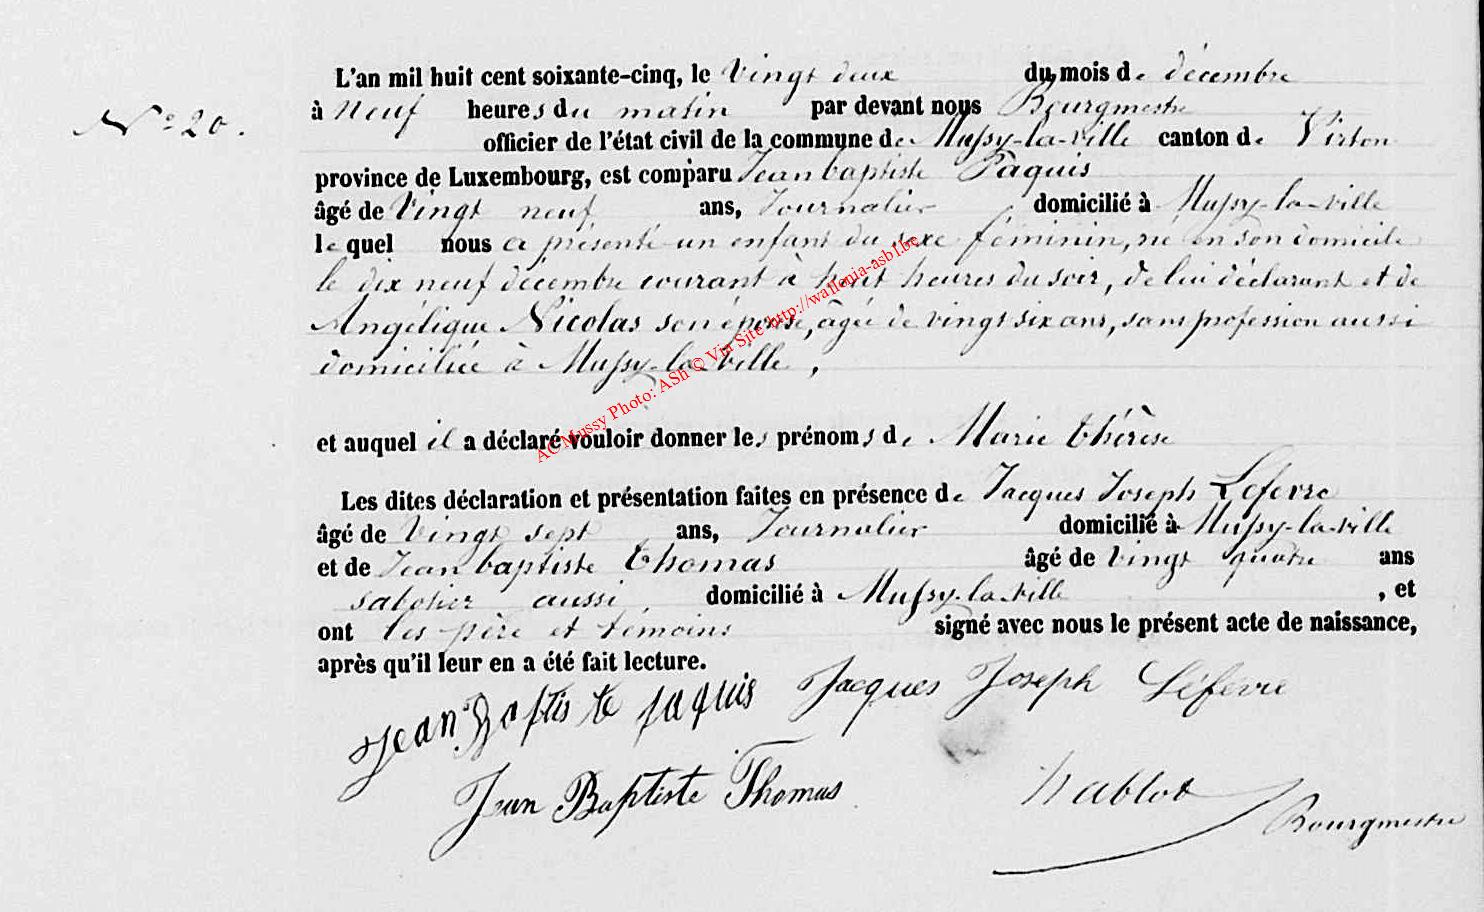 L'an mil huit cent soixante-cinq, le Vingt deux du mois de décembre
N° 20.
à Neuf heures du matin par devant nous Bourgmestre
officier de l'état civil de la commune de Mussy-la-ville canton de Virton
province de Luxembourg, est comparu Jean baptiste Paquis
âgé de Vingt neuf ans, Journalier domicilié à Mussy-la-ville
lequel nous a présenté un enfant du sexe féminin, né en son domicile
le dix neuf décembre courant à huit heures du soir, de lui déclarant et de
Angélique Nicolas son épouse, âgée de vingt six ans, sans profession aussi
domiciliée à Mussy-la-Ville,
et auquel il a déclaré vouloir donner les prénoms de Marie thérèse
Les dites déclaration et présentation faites en présence de Jacques Joseph Lefevre
âgé de Vingt sept ans, Journalier domicilié à Mussy-la-ville
et de Jean baptiste thomas âgé de Vingt quatre ans
sabotier aussi domicilié à Mussy-la-ville, et
ont les père et témoins signé avec nous le présent acte de naissance,
après qu'il leur en a été fait lecture.
Jean Baptiste paquis Jacques Joseph Léfévre
Jean Baptiste Thomas
Bourgmestre
AC Mussy Photo: ASh © Via Site http://wallonia-asbl.be